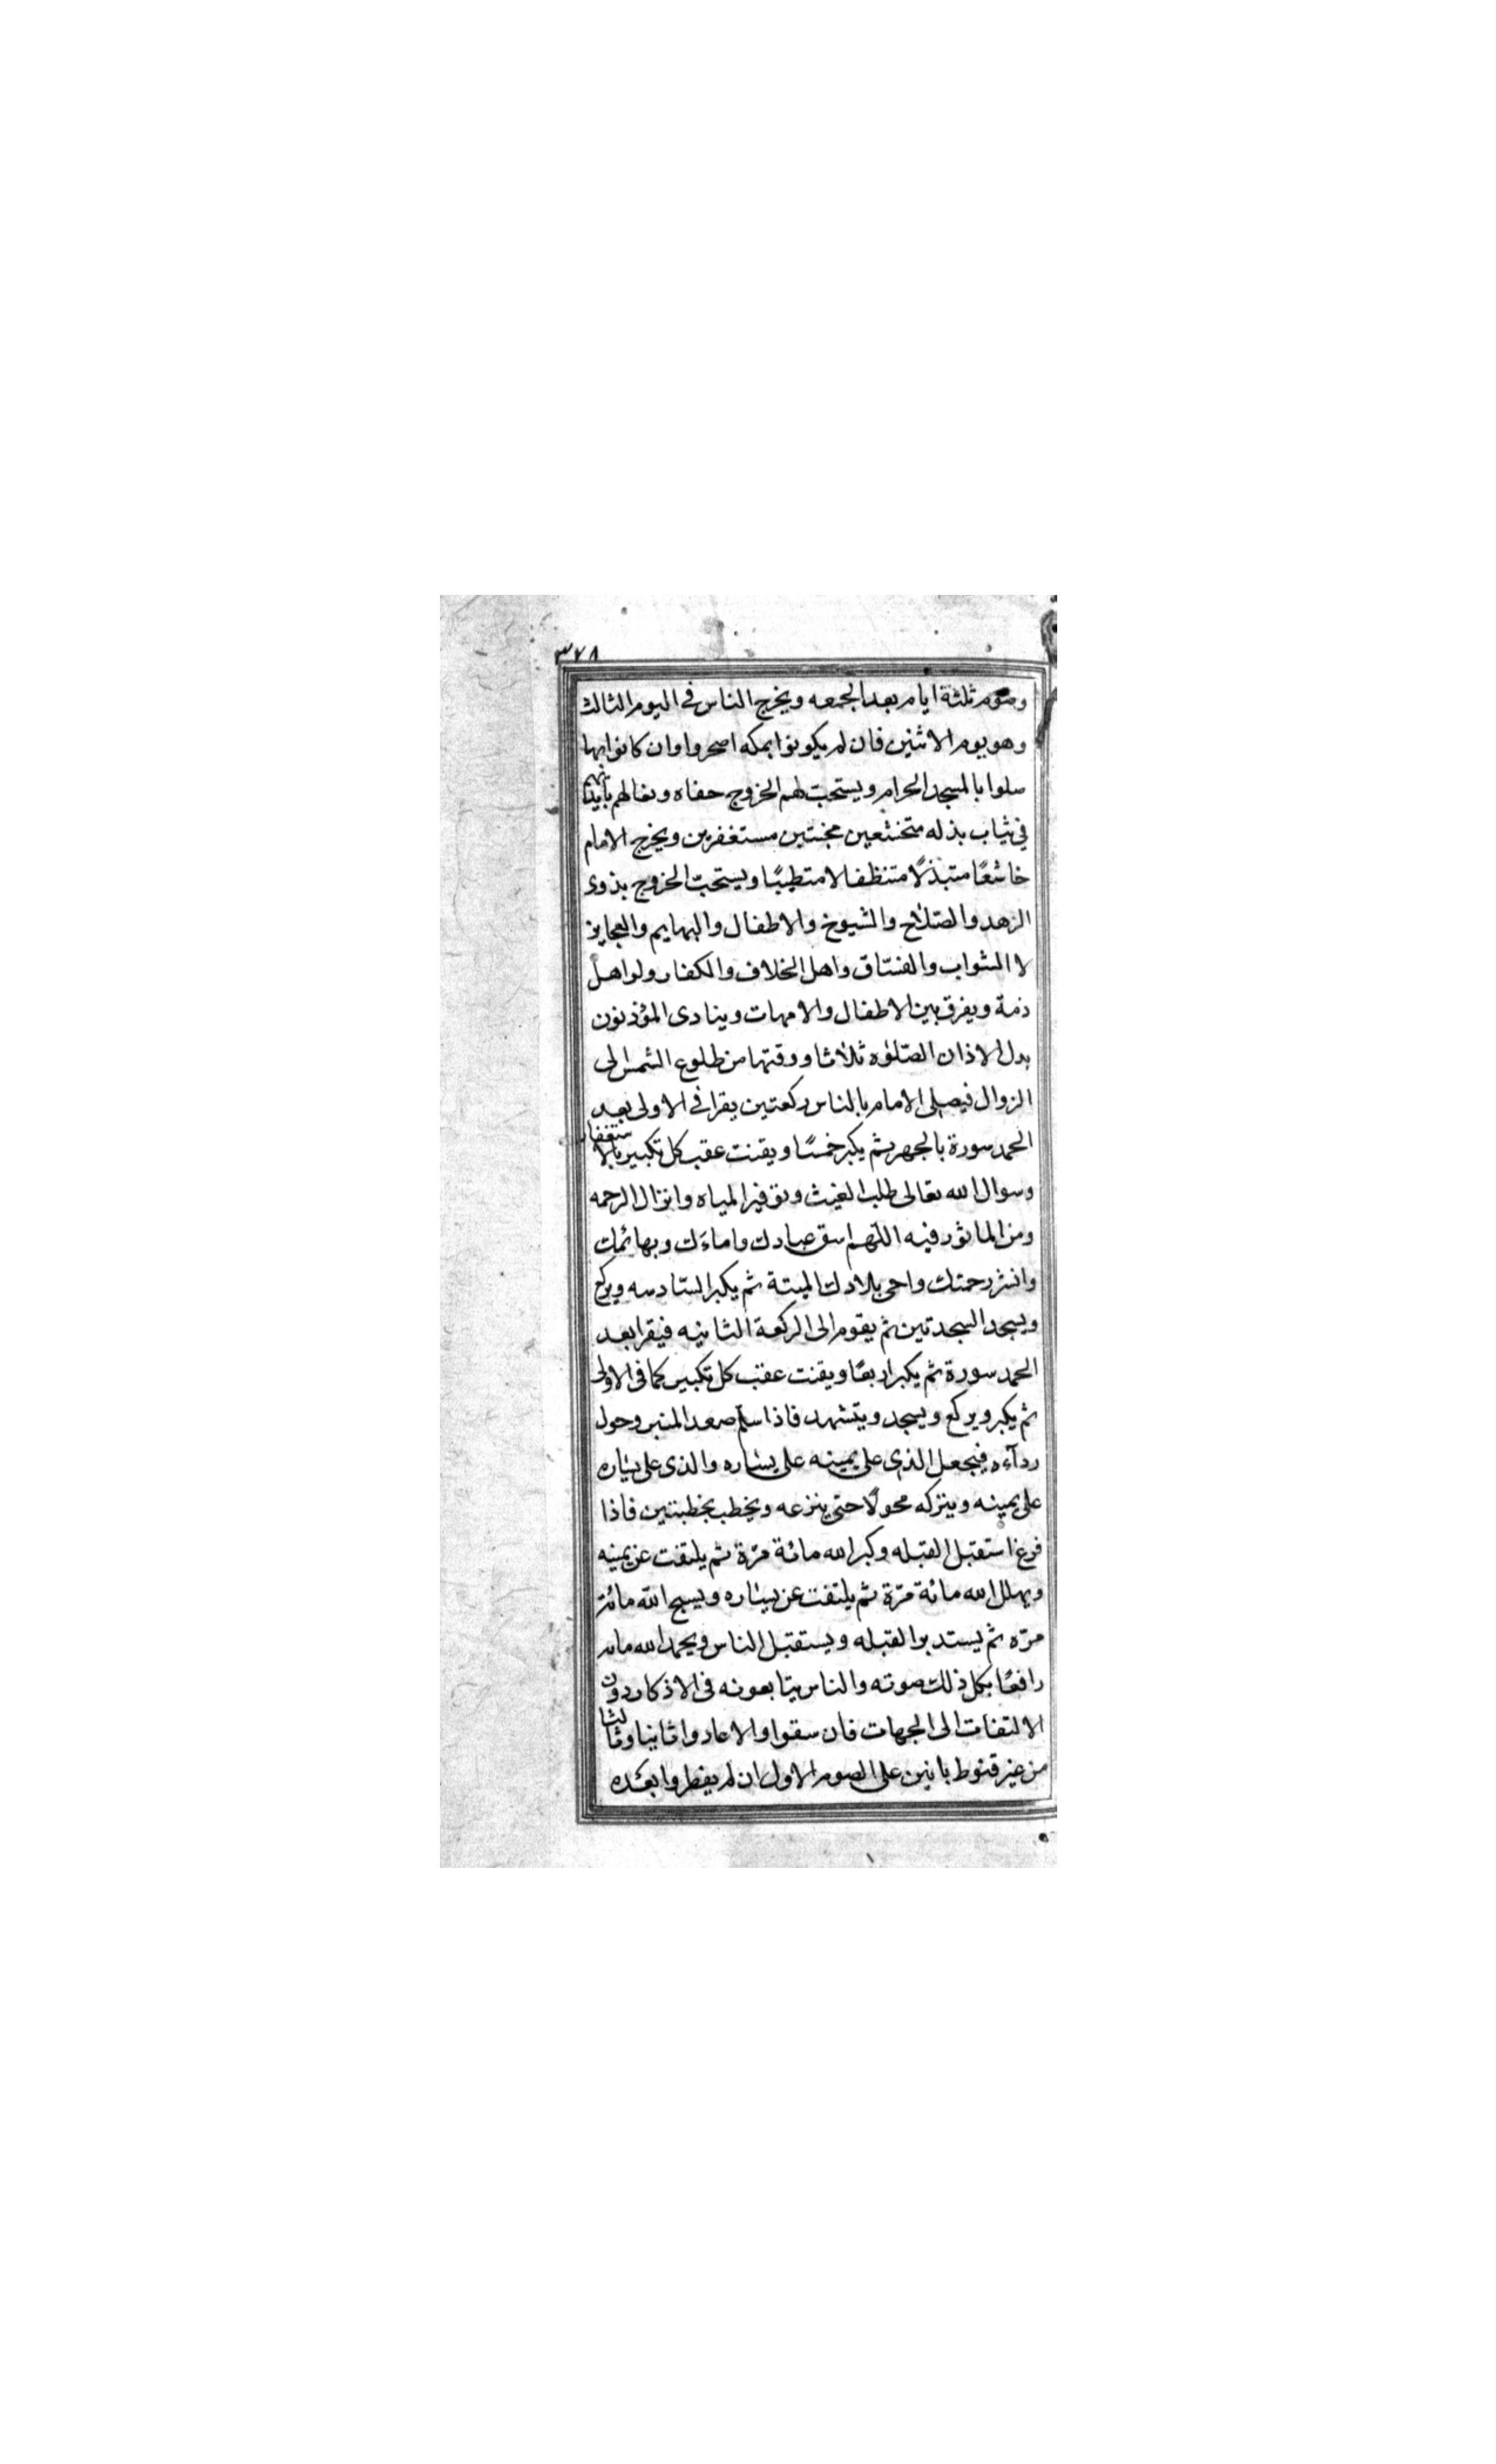 ٣٧٨
وصوم ثلثة ايام بعد الجمعه ويخرج الناس فى اليوم الثالث
وهو يوم الاثنين فان لم يكونوا بمكه اصحروا وان كانوا بها
صلوا بالمسجد الحرام ويستحبّ لهم الخروج حفاه ونعالهم بايديهم
فى ثياب بذله متخشعين مخبتين مستغفرين ويخرج الامام
خاشعًا متبذلًا متنظفا لا متطيبًا ويستحبّ الخروج بذوى
الزهد والصّلاح والشيوخ والاطفال والبهايم والعجايز
لا الشواب والفسّاق واهل الخلاف والكفار ولو اهل
ذمة ويفرق بين الاطفال والامهات وينادى المؤذنون
بدل الاذان الصّلوٰه ثلاثا ووقتها من طلوع الشمس الى
الزوال فيصلى الامام بالناس ركعتين يقرا فى الاولى بعد
الحمد سورة بالجهر ثم يكبر خمسًا ويقنت عقب كل تكبير بالاستغفار
وسوال الله تعالى طلب الغيث وتوفير المياه وانزال الرحمه
ومن الماثور فيه اللهم اسق عبادك واماءَك وبهائمك
وانشر رحمتك واحى بلادك الميتة ثم يكبر السّادسه ويركع
ويسجد السجدتين ثم يقوم الى الركعة الثانيه فيقرا بعد
الحمد سورة ثم يكبر اربعًا ويقنت عقب كل تكبير كما فى الاولى
ثم يكبر ويركع ويسجد ويتشهد فاذا سلّم صعد المنبر وحول
ردآءه فيجعل الذى على يمينه على يساره والذى على يساره
على يمينه ويتركه محولًا حتى ينزعه ويخطب بخطبتين فاذا
فرغ استقبل القبله وكبر الله مائة مرّة ثم يلتفت عن يمينه
ويهلل الله مائة مرّة ثم يلتفت عن يساره ويسبح الله مائة
مرّه ثم يستدبر القبله ويستقبل الناس ويحمد الله مائه
رافعًا بكل ذلك صوته والناس يتابعونه فى الاذكار دون
الالتفات الى الجهات فان سقوا والا عادوا ثانيا وثالثا
من غير قنوط بانين على الصوم الاول ان لم يفطروا بعده